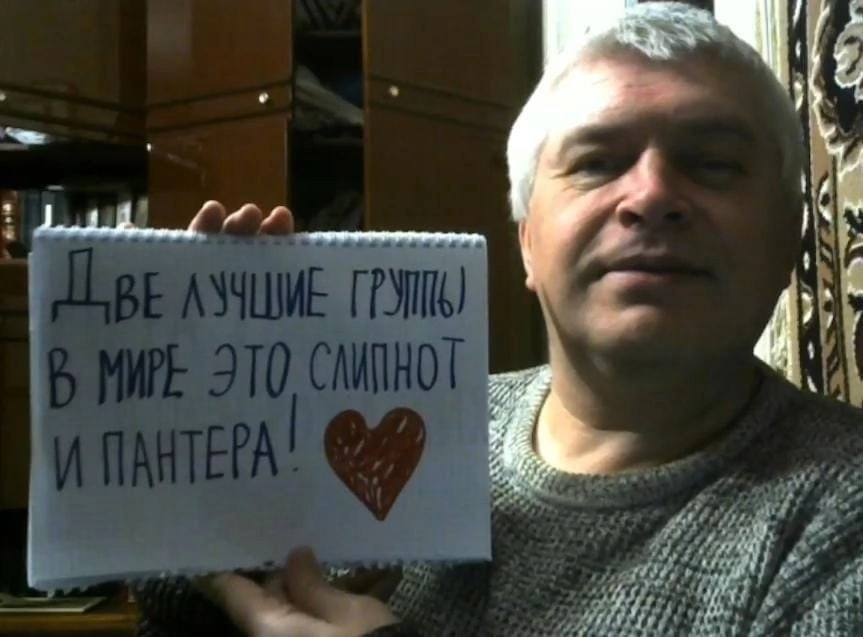 ДВЕ ЛУЧШИЕ ГРУППЫ
В МИРЕ ЭТО СЛИПНОТ
И ПАНТЕРА!